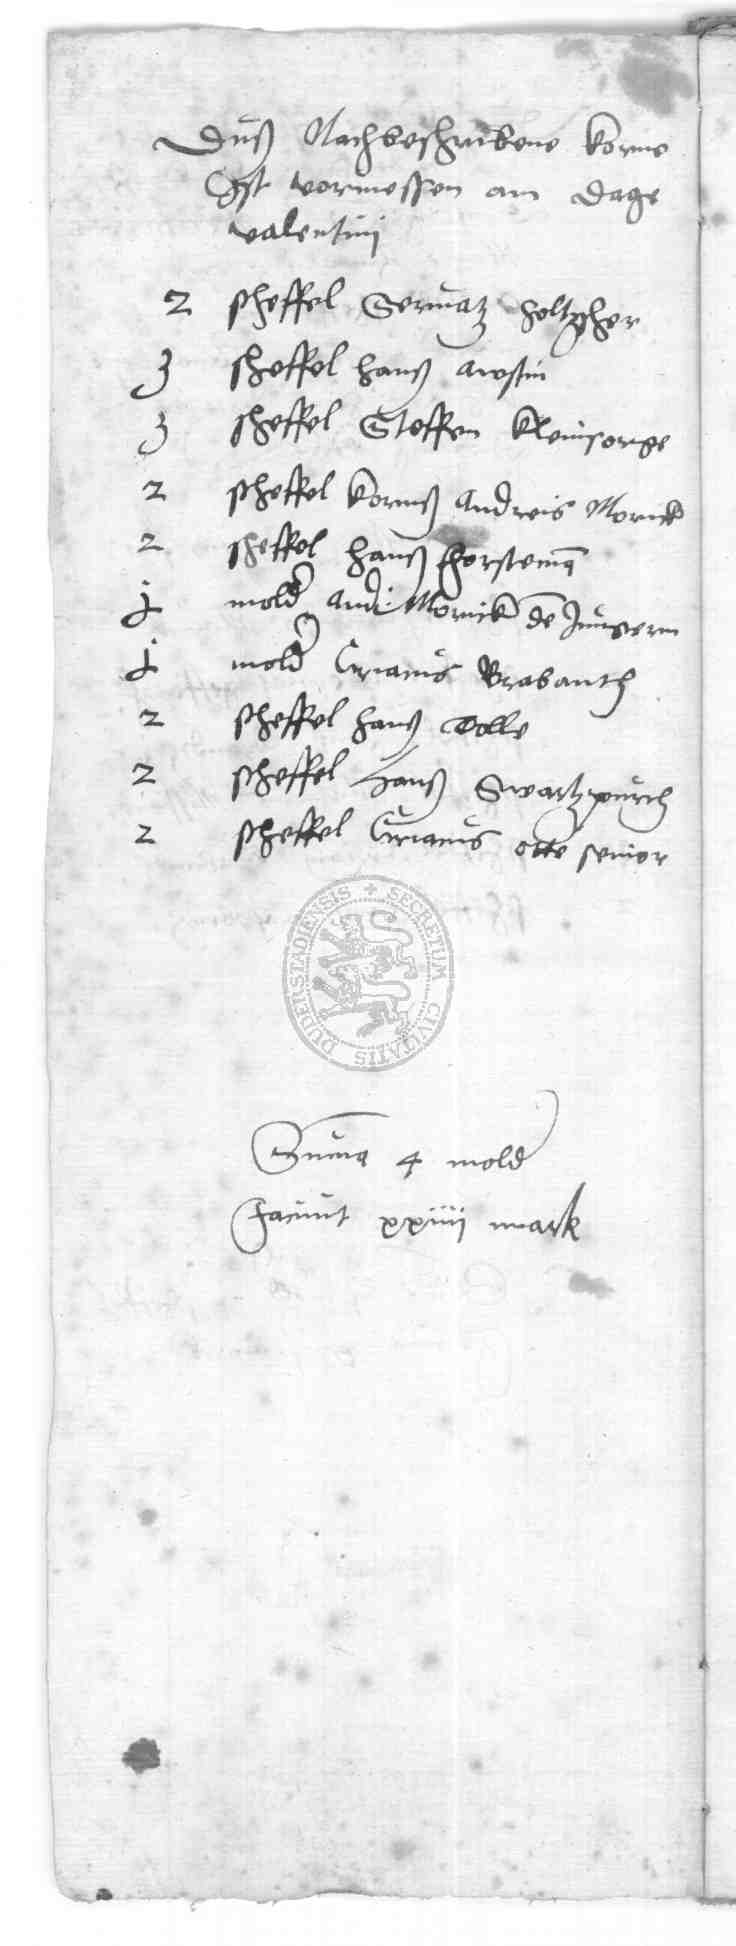 Duß Nachbeschribene korne
Ist vormessen am dage
valentini
2 scheffel Servatz holtzscher
3 scheffel hanß austin
3 scheffel Steffen kleinsorge
2 scheffel kornß Andreis Monick
2 scheffel hanß
j mold Andr. Monick de Jungern
j mold Ciriacus Brabanth
2 scheffel hanß Tolle
2 scheffel Hanß Swartzpurch
2 scheffel Ciriacus otte senior
SECRETUM CIVITATIS DUDERSTADIENSIS
Suma 4 mold
Faciunt xxiiii mark